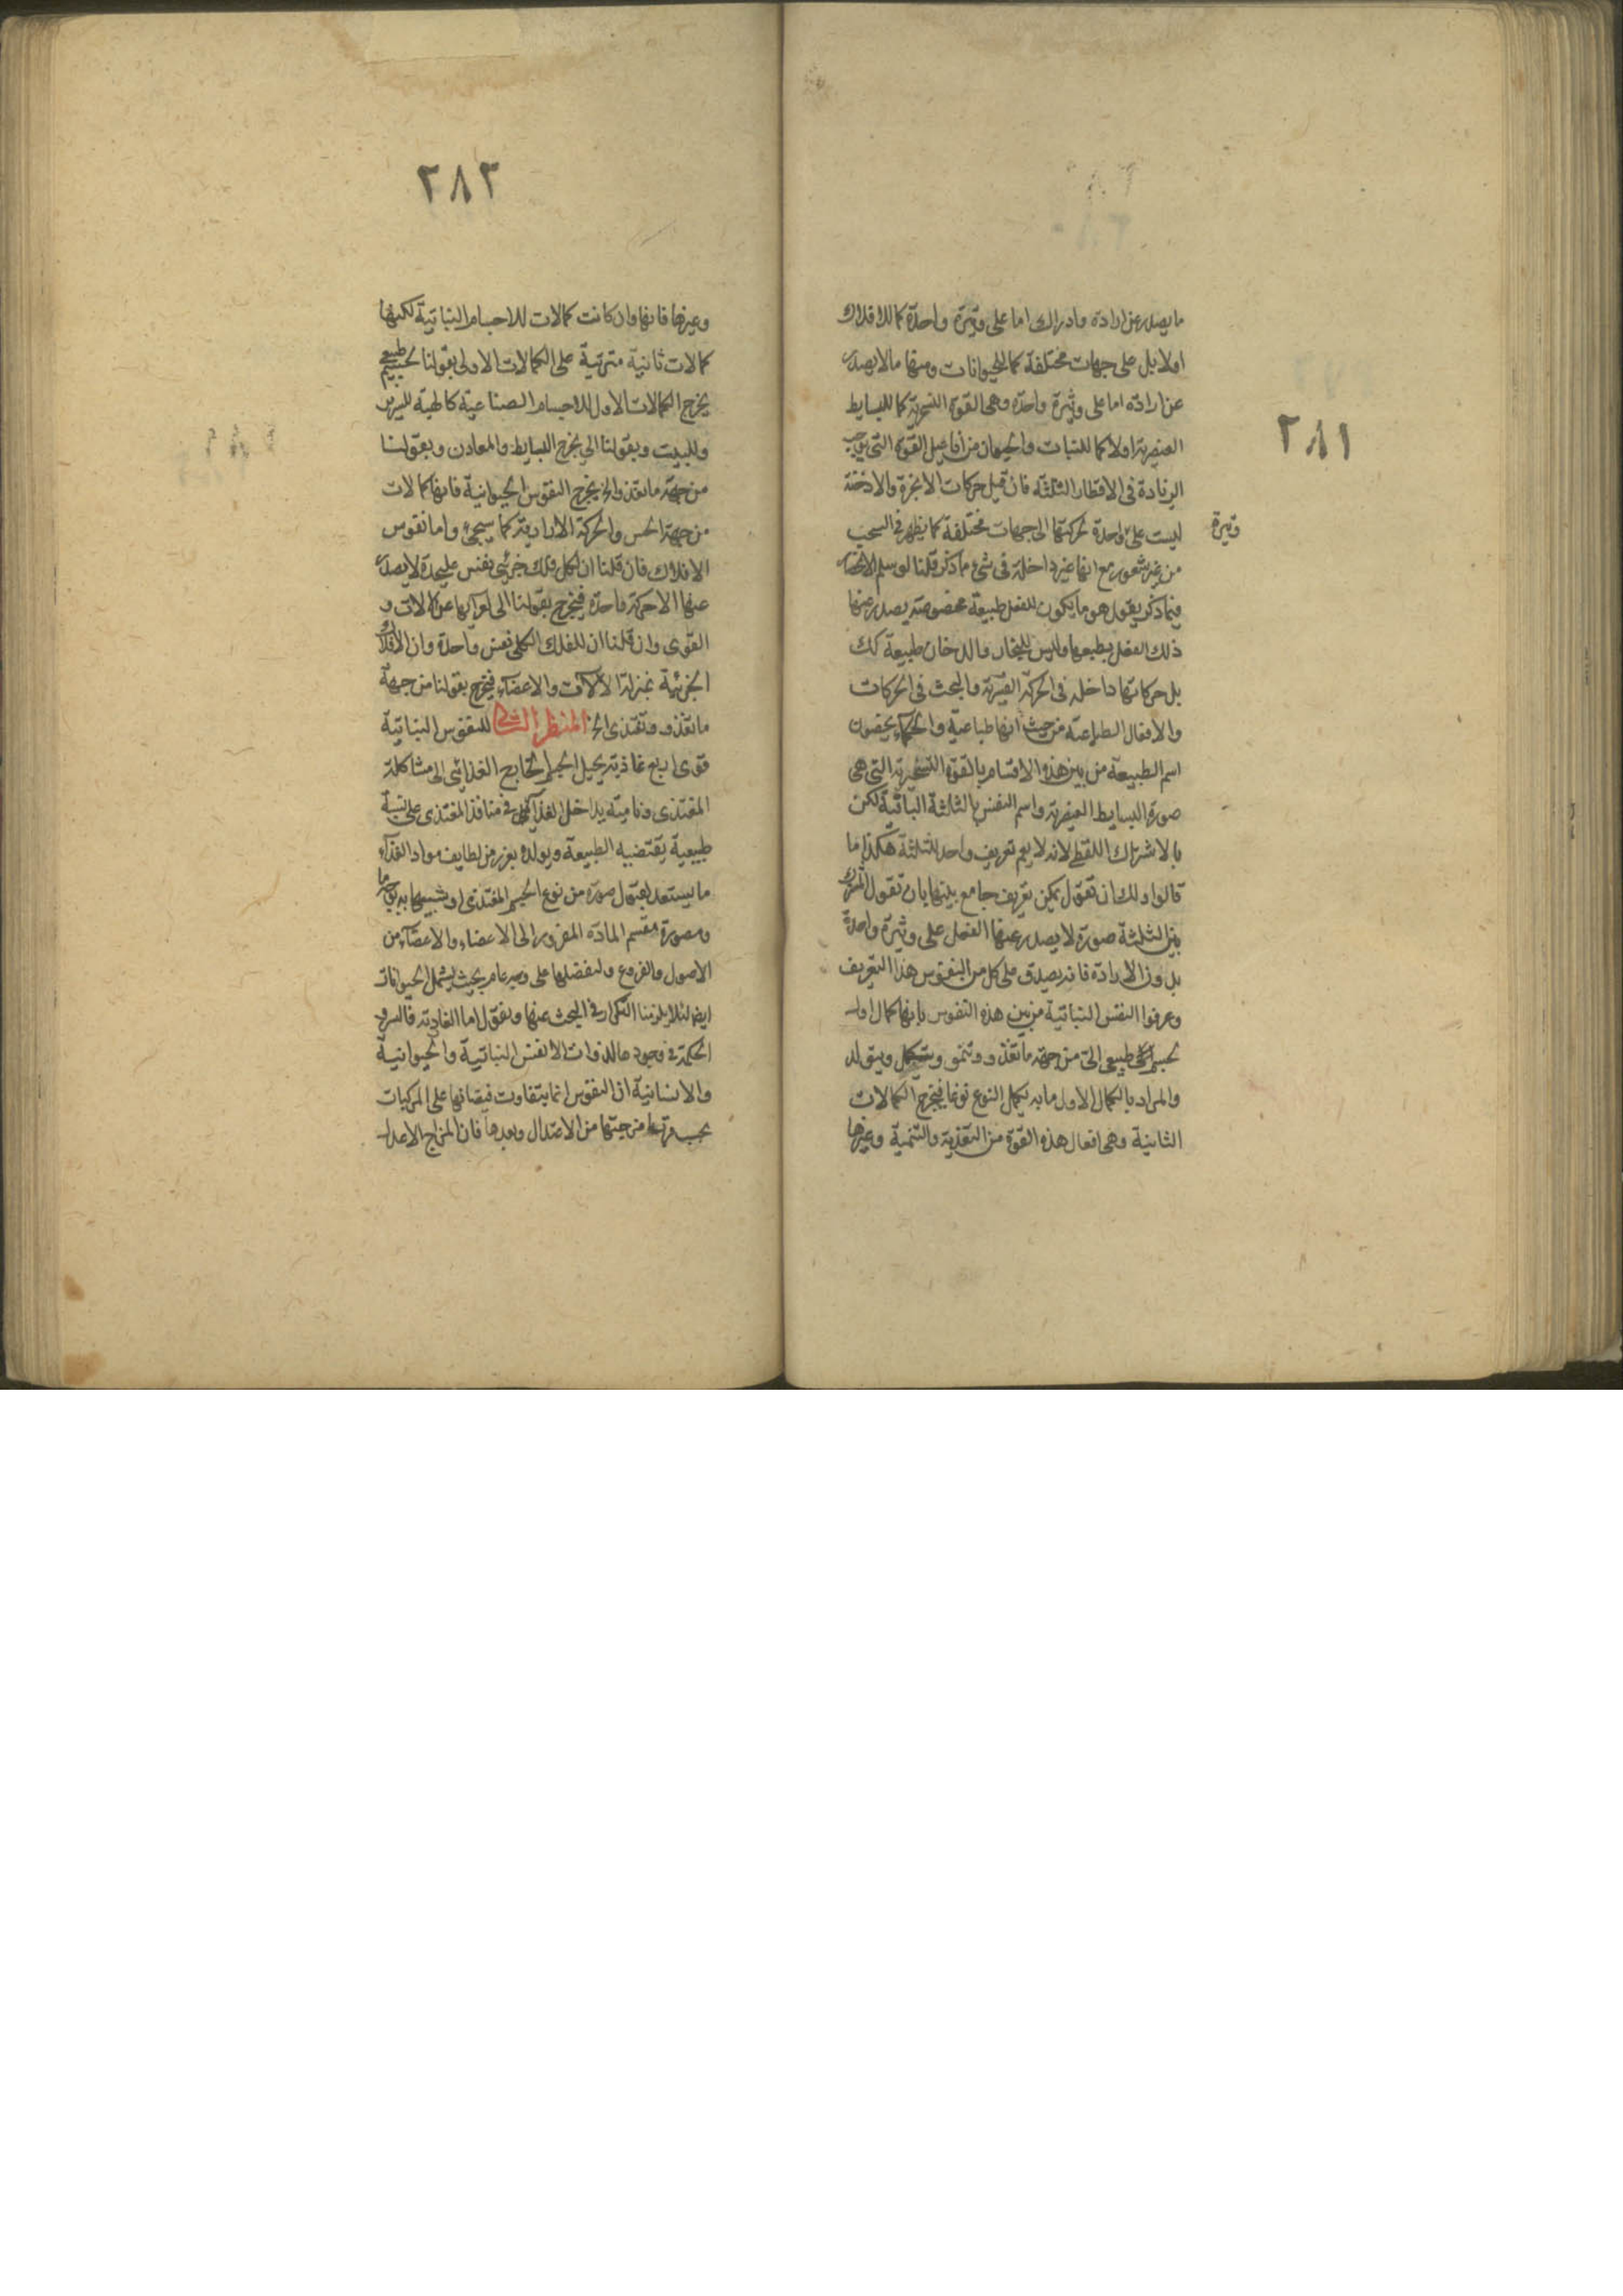 ٢٨١
ما يصدر عن ارادة وادراك اما على وتيرة واحدة كما للافلاك
اولا بل على جهات مختلفة كما للحيوانات ومنها ما لا يصدر
عن ارادة اما على وتيرة واحدة وهى القوة التسخيرية كما للبسايط
العنصرية اولا كما للنبات والحيوان من افاعيل القوة التى توجب
الزيادة فى الاقطار الثلثة فان قيل حركات الابخرة والادخنة
ليست على واحدة لحركتها الى جهات مختلفة كما يظهر فى السحب
وتيرة
من غير شعور مع انها غير داخلة فى شئ مما ذكر قلنا لو سلم الانحصار
فيما ذكر يقول هو ما يكون للفعل طبيعة مخصوصة يصدر عنها
ذلك الفعل بطبعها وليس للبخار والدخان طبيعة كك
بل حركاتها داخلة فى الحركة القسرية والبحث فى الحركات
والافعال الطباعية من حيث انها طباعية والحكماء يخصون
اسم الطبيعة من بين هذه الاقسام بالقوة التسخيرية التى هى
صورة البسايط العنصرية واسم النفس بالثلثة الباقية لكن
بالاشتراك اللفظى لانه لا يعم تعريف واحد للثلثة هكذا ما
قالوا ولك ان تقول يمكن تعريف جامع بينها بان تقول المشترك
بين الثلثة صورة لا يصدر عنها الفعل على وتيرة واحدة
بدون الارادة فانه يصدق على كل من النفوس هذا التعريف
وعرفوا النفس النباتية من بين هذه النفوس بانها كمال اول
لجسم طبيعى الى من جهة ما تغذو وتنمو ويتولد
والمراد بالكمال الاول ما به يكمل النوع نوعا فيخرج الكمالات
الثانية وهى افعال هذه القوة من التغذية والتنمية وغيرها
٢٨٢
وغيرها فانها وان كانت كمالات للاجسام النباتية لكنها
كمالات ثانية مترتبة على الكمالات الاولى بقولنا لجسم طبيعى
يخرج الكمالات الاول للاجسام الصناعية كالهيئة للسرير
وللبيت وبقولنا الى يخرج البسايط والمعادن وبقولنا
من جهة ما تغذو الخ يخرج النفوس الحيوانية فانها كمالات
من جهة الحس والحركة الارادية كما سيجئ واما نفوس
الافلاك فان قلنا ان لكل فلك جزئى نفس عليحدة لا يصدر
عنها الا حركة واحدة فيخرج بقولنا الى لعرائها عن الالات و
القوى وان قلنا ان للفلك الكلى نفس واحدة وان الافلاك
الجزئية بمنزلة الالات والاعضاء فيخرج بقولنا من جهة
ما تغذو وتغتذى الخ المنظر الثانى للنفوس النباتية
قوى اربع غاذية يحيل الجسم الخارج الغذائى الى مشاكلة
المغتذى ونامية يداخل الغذاء فى منافذ المغتذى على نسبة
طبيعية يقتضيه الطبيعة ومولدة يفرز من لطايف مواد الغذاء
ما يستعد لقبول صورة من نوع الجسم المغتذى او شبيها به
ومصورة تقسم المادة المفروزة الى الاعضاء والاعضاء من
الاصول والفروع ولنفصلها على وجه عام بحيث يشمل الحيوانات
ايضا لئلا يلزمنا التكرار فى البحث عنها ونقول اما الغاذية فالسر و
الحكمة فى وجودها لذوات الانفس النباتية والحيوانية
والانسانية ان النفوس انما يتفاوت فيضانها على المركبات
بحسب قربها من الاعتدال وبعدها فان المزاج الاعدل